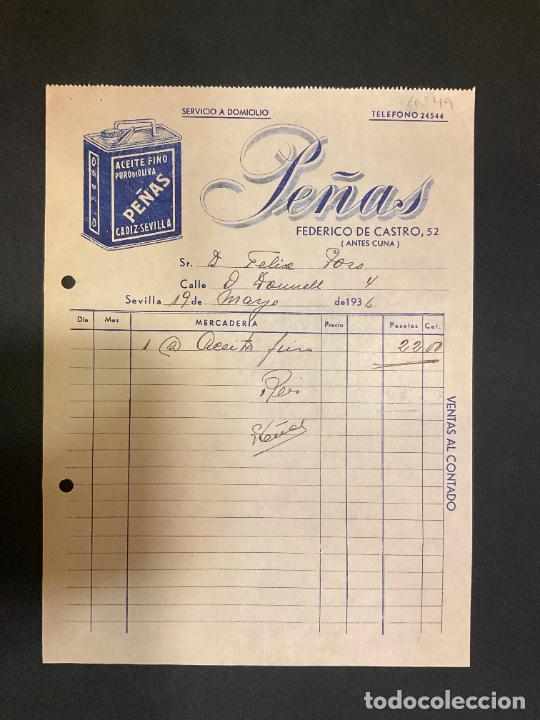 10349
SERVICIO A DOMICILIO
TELEFONO 24544
ACEITE FINO
PURO DE OLIVA
PEÑAS
CADIZ-SEVILLA
Peñas
FEDERICO DE CASTRO, 52
(ANTES CUNA)
Sr. D Felix Poro
Calle O Donnell 4
Sevilla 19 de Mayo de 1936
Dia Mes MERCADERIA Precio Pesetas Cet.
1 @ Aceite fino 22 00
Peñas
VENTAS AL CONTADO
todocoleccion.net